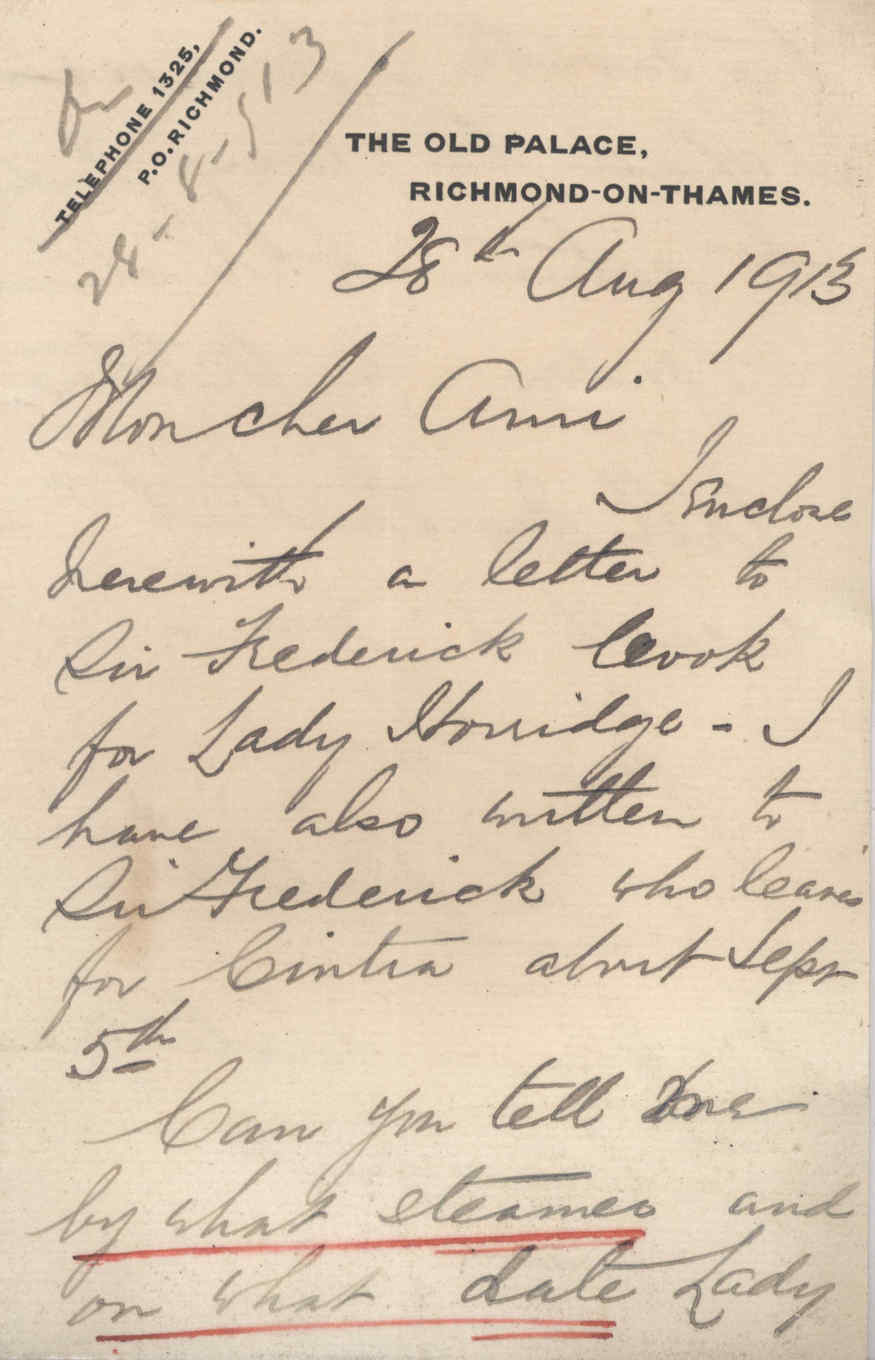 TELEPHONE 1325,
P.O. RICHMOND.
28-8-13
THE OLD PALACE,
RICHMOND-ON-THAMES.
28th Aug 1913
Mon cher Ami
I enclose
herewith a letter to
Sir Frederick Cook
for Lady Horridge - I
have also written to
Sir Frederick who leaves
for Cintra about Sept
5th
Can you tell me
by what steamer and
on what date Lady